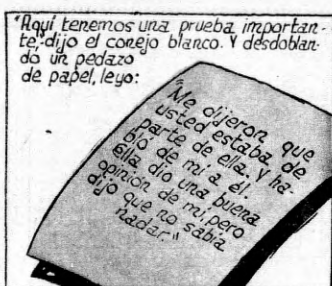 "Aquí tenemos una prueba importan-
te," dijo el conejo blanco. Y desdoblan-
do un pedazo
de papel, leyo:
"Me dijeron que
usted estaba de
parte de ella. Y ha-
bló de mi a él.
Ella dio una buena
opinión de mi, pero
dijo que no sabia
nadar."